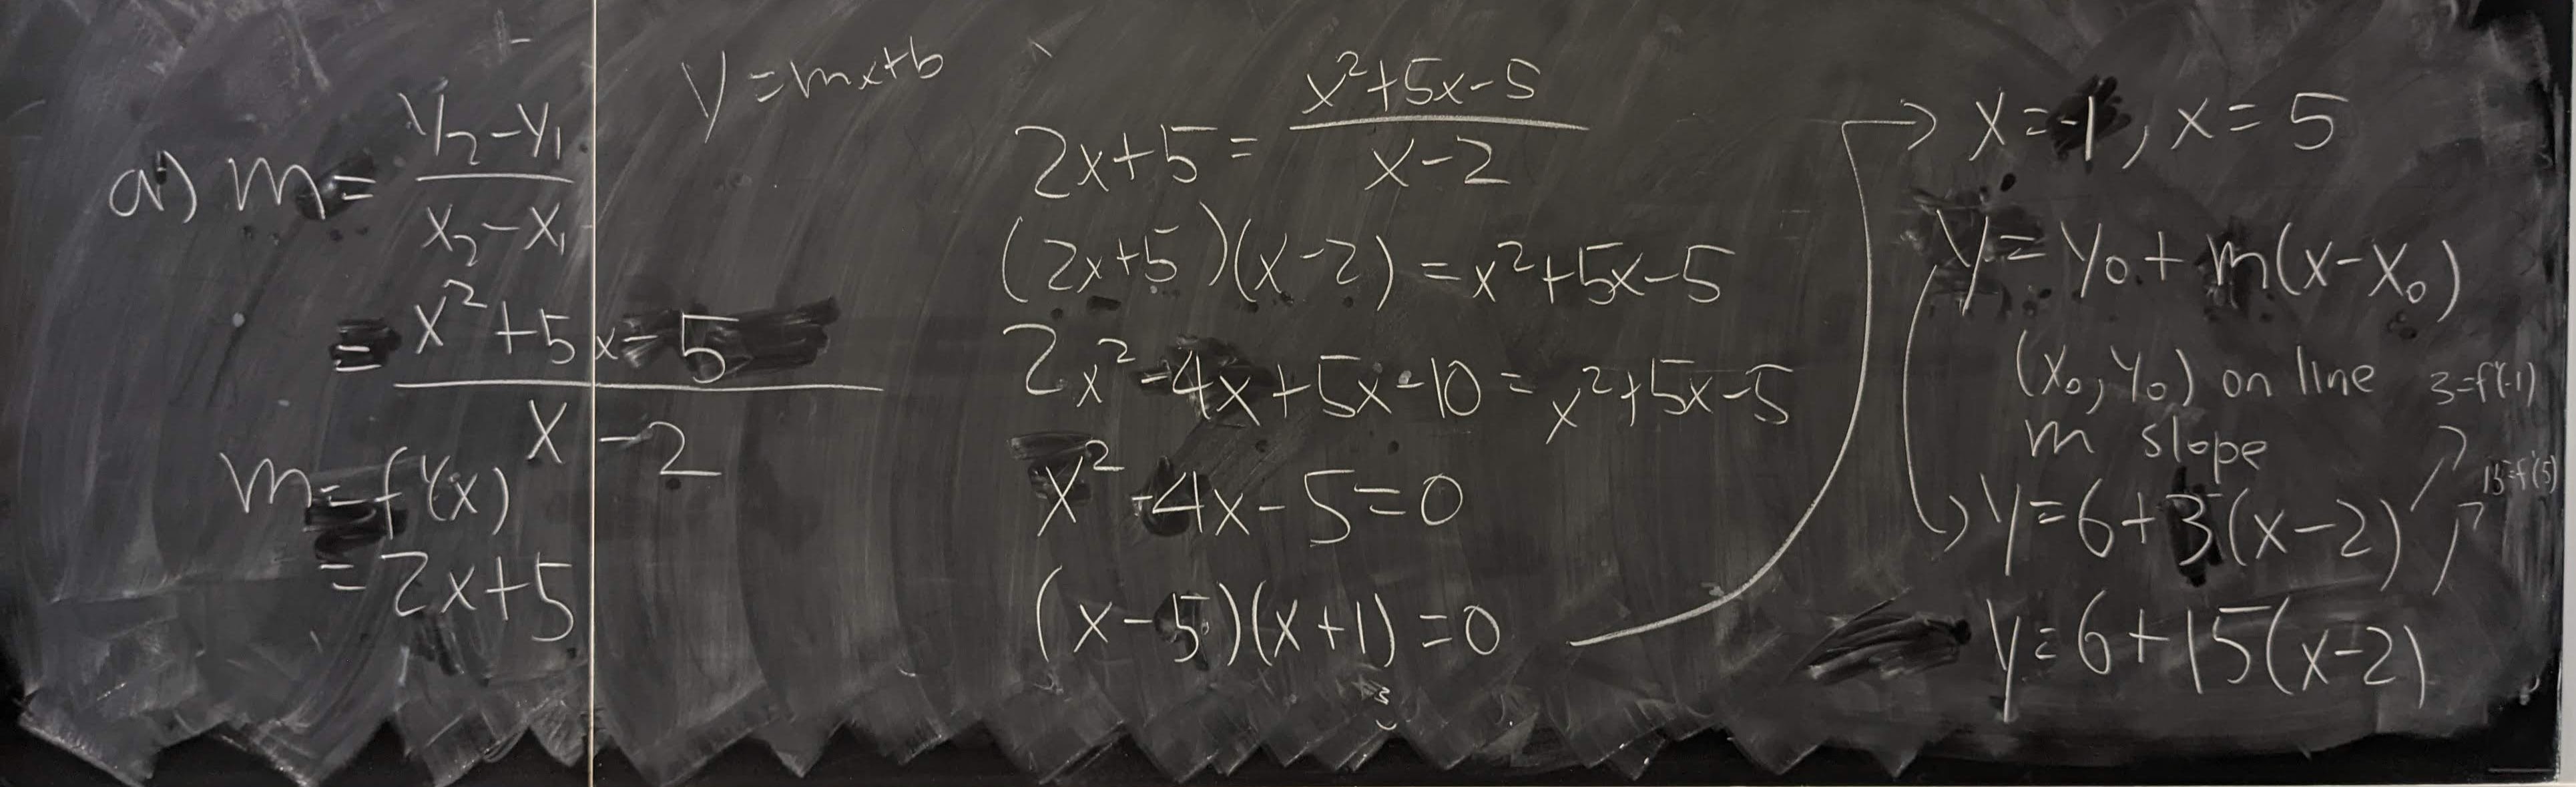 a) m = y₂-y₁ / x₂-x₁
= x²+5x-5 / x-2
m = f'(x)
= 2x+5
y = mx+b
2x+5 = x²+5x-5 / x-2
(2x+5)(x-2) = x²+5x-5
2x²-4x+5x-10 = x²+5x-5
x²-4x-5=0
(x-5)(x+1)=0
x=-1, x=5
y = y₀ + m(x-x₀)
(x₀, y₀) on line
m slope
3=f'(-1)
y=6+3(x-2)
15=f'(5)
y=6+15(x-2)